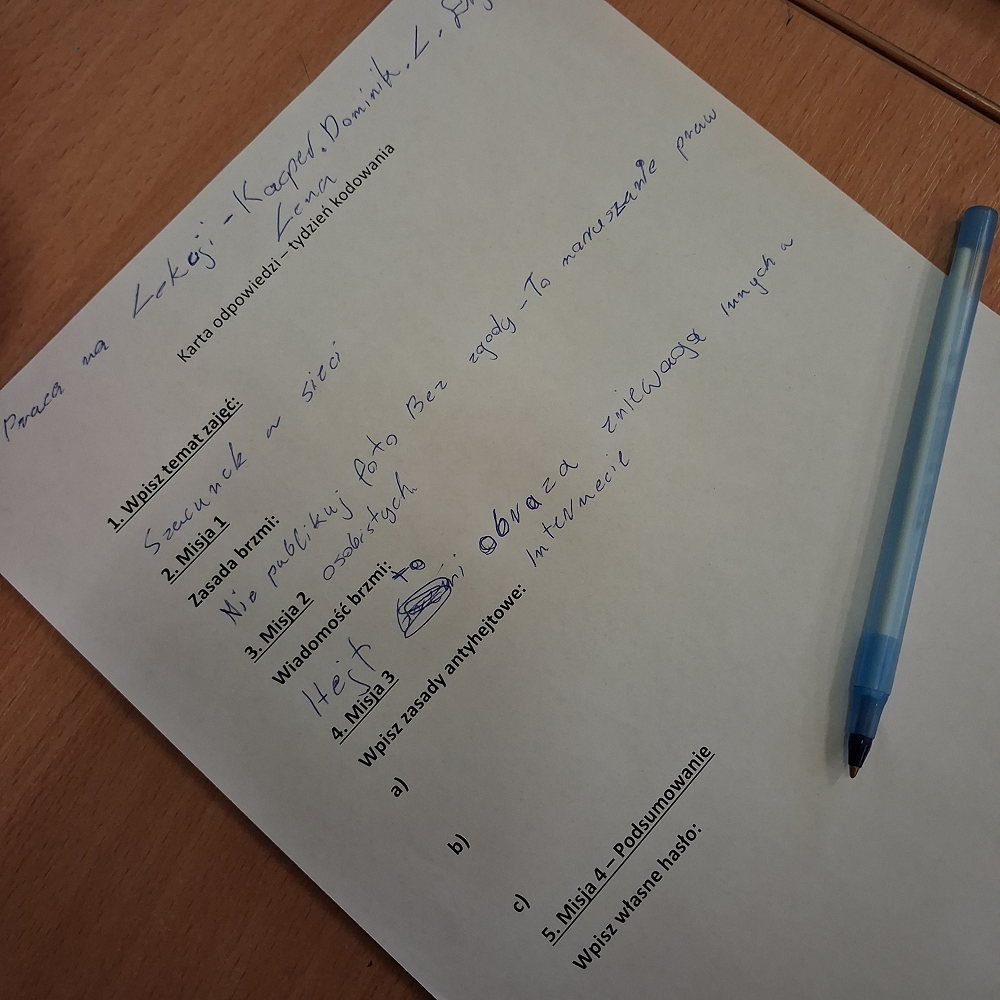 Praca na Lekcji - Kacper. Dominik. L.
Lena
Karta odpowiedzi – tydzień kodowania
1. Wpisz temat zajęć:
Szacunek w sieci
2. Misja 1
Zasada brzmi:
Nie publikuj foto Bez zgody - To naruszanie praw
osobistych
3. Misja 2
Wiadomość brzmi:
Hejt to obraza zniewaga innych w
Internecie
4. Misja 3
Wpisz zasady antyhejtowe:
a)
b)
c)
5. Misja 4 – Podsumowanie
Wpisz własne hasło: